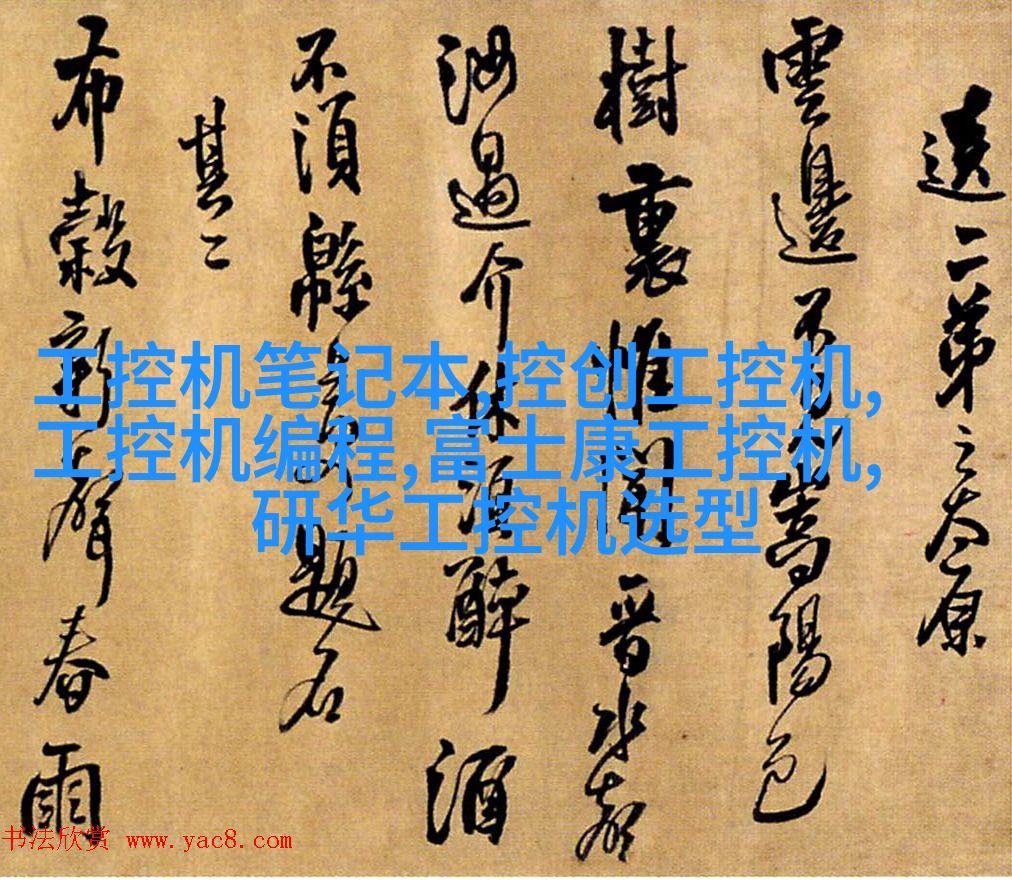 送二弟之太原
雲邊不嵩陽色
樹裏惟聞晉水
汝過介休醉酒
不須緜題
其二
布穀新聲春雨
工控机笔记本,控创工控机,
工控机编程,富士康工控机,
研华工控机选型
书法欣赏 www.yac8.com